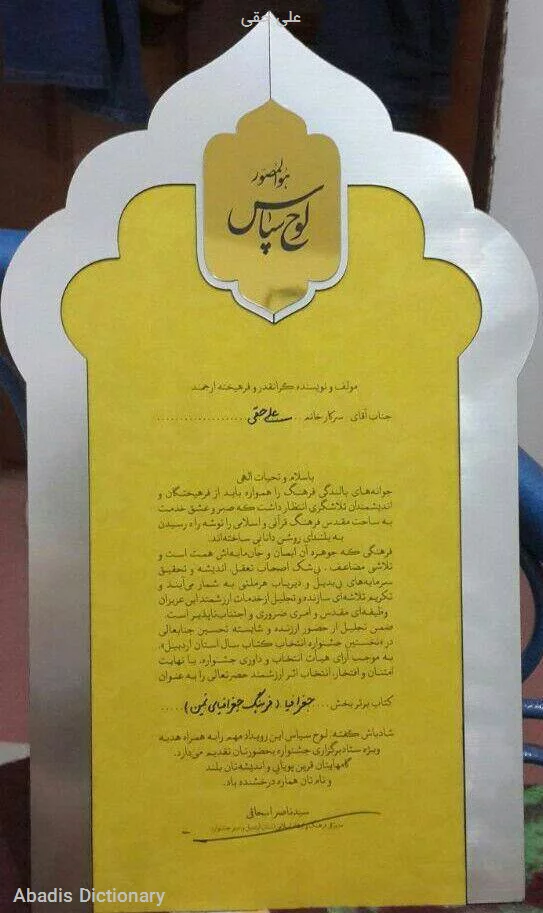 علی حقی
هوالمصور
لوح سپاس
مولف و نویسنده گرانقدر و فرهیخته ارجمند
جناب آقای . سرکار خانم ... علی حقی ...................
باسلام و تحیات الهی
جوانه‌های بالندگی فرهنگ را همواره باید از فرهیختگان و
اندیشمندان تلاشگری انتظار داشت که صبر و عشق خدمت
به ساحت مقدس فرهنگ قرآنی و اسلامی را توشه راه رسیدن
به بلندای روشن دانایی ساخته‌اند.
فرهنگی که جوهره آن ایمان و جان‌مایه‌اش همت است و
تلاشی مضاعف . بی‌شک اصحاب تعقل، اندیشه و تحقیق
سرمایه‌های بی‌بدیل و دیریاب هر ملتی به شمار می‌آیند و
تکریم تلاشهای سازنده و تجلیل از خدمات ارزشمند این عزیزان
وظیفه‌ای مقدس و امری ضروری و اجتناب‌ناپذیر است.
ضمن تجلیل از حضور ارزنده و شایسته تحسین جنابعالی
در «نخستین جشنواره انتخاب کتاب سال استان اردبیل»،
به موجب آرای هیأت انتخاب و داوری جشنواره، با نهایت
امتنان و افتخار، انتخاب اثر ارزشمند حضرتعالی را به عنوان
کتاب برتر بخش ... جغرافیا ( فرهنگ جغرافیای نمین ) .....
شادباش گفته، لوح سپاس این رویداد مهم را به همراه هدیه
ویژه ستاد برگزاری جشنواره بحضورتان تقدیم می‌دارد.
گامهایتان قرین پویایی و اندیشه‌تان بلند
و نام‌تان هماره درخشنده باد.
سیدناصر اسحاقی
Abadis Dictionary